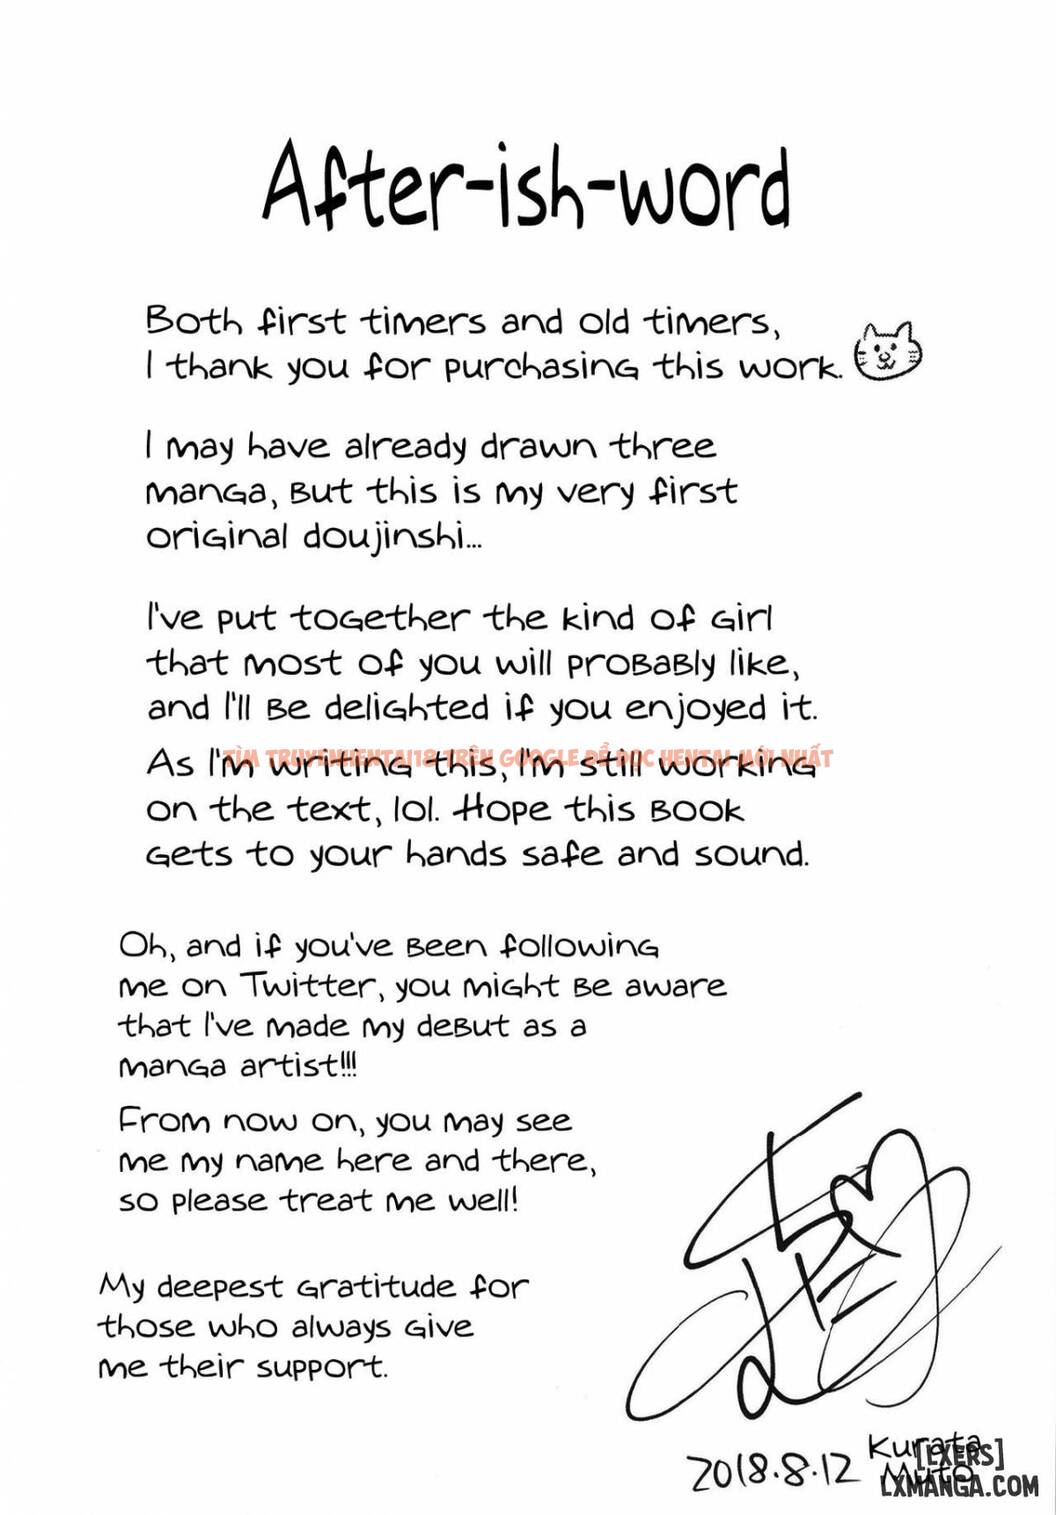 After-ish-word
Both first timers and old timers,
I thank you for purchasing this work.
I may have already drawn three
manga, but this is my very first
original doujinshi...
I've put together the kind of girl
that most of you will probably like,
and I'll be delighted if you enjoyed it.
TÌM TRUYENHENTAI18 TRÊN GOOGLE ĐỂ ĐỌC HENTAI MỚI NHẤT
As I'm writing this, I'm still working
on the text, lol. Hope this book
gets to your hands safe and sound.
Oh, and if you've been following
me on Twitter, you might be aware
that I've made my debut as a
manga artist!!!
From now on, you may see
me my name here and there,
so please treat me well!
My deepest gratitude for
those who always give
me their support.
2018.8.12
Kurata
Muto
[LXERS]
LXMANGA.COM